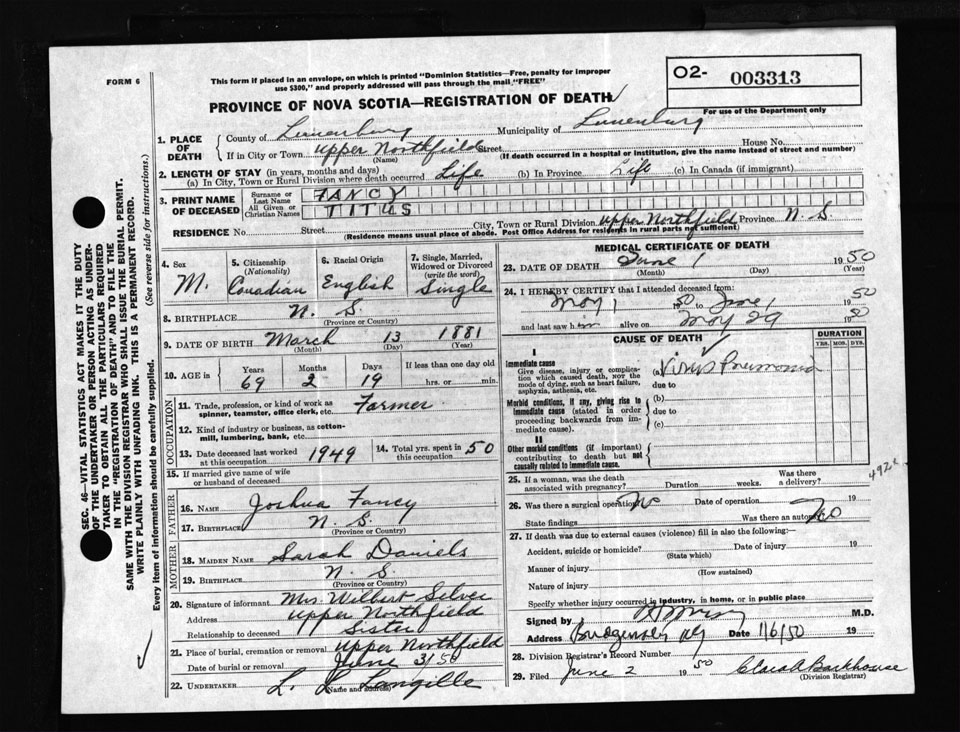 FORM 6
This form if placed in an envelope, on which is printed "Dominion Statistics—Free, penalty for improper
use $300," and properly addressed will pass through the mail "FREE"
PROVINCE OF NOVA SCOTIA—REGISTRATION OF DEATH
O2- 003313
For use of the Department only
1. PLACE OF DEATH
County of Lunenburg Municipality of Lunenburg
If in City or Town Upper Northfield Street House No.
(Name) (If death occurred in a hospital or institution, give the name instead of street and number)
2. LENGTH OF STAY (in years, months and days)
(a) In City, Town or Rural Division where death occurred Life (b) In Province Life (c) In Canada (if immigrant)
3. PRINT NAME OF DECEASED
Surname or Last Name FANCY
All Given or Christian Names TITUS
RESIDENCE No. Street City, Town or Rural Division Upper Northfield Province N. S.
(Residence means usual place of abode. Post Office Address for residents in rural parts not sufficient)
4. Sex M.
5. Citizenship (Nationality) Canadian
6. Racial Origin English
7. Single, Married, Widowed or Divorced (write the word) Single
8. BIRTHPLACE N. S.
(Province or Country)
9. DATE OF BIRTH March 13 1881
(Month) (Day) (Year)
10. AGE in Years 69 Months 2 Days 19 If less than one day old hrs. or min.
OCCUPATION
11. Trade, profession, or kind of work as spinner, teamster, office clerk, etc. Farmer
12. Kind of industry or business, as cotton-mill, lumbering, bank, etc.
13. Date deceased last worked at this occupation 1949
14. Total yrs. spent in this occupation 50
15. If married give name of wife or husband of deceased
FATHER
16. NAME Joshua Fancy
17. BIRTHPLACE N. S.
(Province or Country)
MOTHER
18. MAIDEN NAME Sarah Daniels
19. BIRTHPLACE N. S.
(Province or Country)
20. Signature of informant Mrs. Wilbert Silver
Address Upper Northfield
Relationship to deceased Sister
21. Place of burial, cremation or removal Upper Northfield
Date of burial or removal June 3/50
22. UNDERTAKER L. L. Langille
(Name and address)
MEDICAL CERTIFICATE OF DEATH
23. DATE OF DEATH June 1 1950
(Month) (Day) (Year)
24. I HEREBY CERTIFY that I attended deceased from:
May 1 50 to June 1 1950
and last saw him alive on May 29 1950
CAUSE OF DEATH
DURATION
YRS. MOS. DYS.
I
Immediate cause
Give disease, injury or complication which caused death, NOT the mode of dying, such as heart failure, asphyxia, asthenia, etc.
(a) Virus Pneumonia
due to
Morbid conditions, if any, giving rise to immediate cause (stated in order proceeding backwards from immediate cause).
(b)
due to
(c)
II
Other morbid conditions (if important) contributing to death but not causally related to immediate cause.
492
25. If a woman, was the death associated with pregnancy? Duration weeks. Was there a delivery?
26. Was there a surgical operation? No Date of operation 19
State findings Was there an autopsy? No
27. If death was due to external causes (violence) fill in also the following:
Accident, suicide or homicide? Date of injury 19
(State which)
Manner of injury
(How sustained)
Nature of injury
Specify whether injury occurred in industry, in home, or in public place
Signed by M.D.
Address Date 1/6/50 19
28. Division Registrar's Record Number
29. Filed June 2 1950 Clara A Barkhouse
(Division Registrar)
SEC. 46—VITAL STATISTICS ACT MAKES IT THE DUTY
OF THE UNDERTAKER OR PERSON ACTING AS UNDERTAKER TO OBTAIN ALL THE PARTICULARS REQUIRED
IN THE "REGISTRATION OF DEATH" AND TO FILE THE
SAME WITH THE DIVISION REGISTRAR WHO SHALL ISSUE THE BURIAL PERMIT.
WRITE PLAINLY WITH UNFADING INK. THIS IS A PERMANENT RECORD.
Every item of information should be carefully supplied. (See reverse side for instructions.)